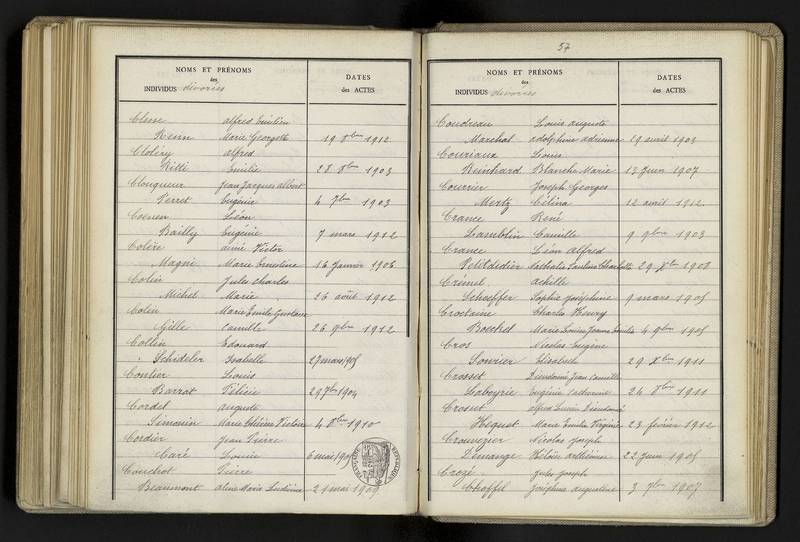 NOMS ET PRÉNOMS
des
INDIVIDUS divorcés
DATES
des ACTES
Clesse alfred Emilien
Renn Marie Georgette 19 8bre 1912
Clolery alfred
Ritti Emilie 28 8bre 1903
Clouqueur Jean Jacques albert
Perret Eugénie 4 7bre 1903
Coenen Léon
Bailly Eugénie 7 mars 1912
Colère aimé Victor
Magni Marie Ernestine 16 Janvier 1906
Colin Jules Charles
Michel Marie 26 août 1912
Colin Marie Emile Gustave
Gille Camille 26 9bre 1912
Collin Edouard
Schideler Isabelle 27 mars 1905
Contier Louis
Barrot Félicie 29 7bre 1904
Cordel auguste
Simonin Marie Thérèse Victoire 4 8bre 1910
Cordier Jean Pierre
Caré Louise 6 mai
Couchot Pierre
Beaumont aline Marie 21 mai 1909
57
NOMS ET PRÉNOMS
des
INDIVIDUS divorcés
DATES
des ACTES
Coudreau Louis auguste
Marchal adolphine adrienne 19 avril 1903
Couriaux Louis
Reinhard Blanche Marie 13 Juin 1907
Courrier Joseph Georges
Mertz Célina 12 avril 1912
Crance René
Lamblin Camille 9 9bre 1903
Crance Léon alfred
Petitdidier Nathalie Pauline Charlotte 29 Xbre 1908
Crémel achille
Scheffer Sophie Joséphine 9 mars 1905
Croctaine Charles Henry
Boechel Marie Louise Jeanne Emilie 4 9bre 1905
Cros Nicolas Eugène
Sonrier Elisabeth 29 Xbre 1911
Crosset Dieudonné Jean Camille
Labeyrie Eugénie Catherine 24 8bre 1911
Crosset alfred Lucien Dieudonné
Hequet Marie Emilie Virginie 23 février 1912
Crouvezier Nicolas Joseph
Demange Héloïse arthémise 22 Juin 1905
Crozé Jules Joseph
Choffel Joséphine augustine 3 7bre 1907